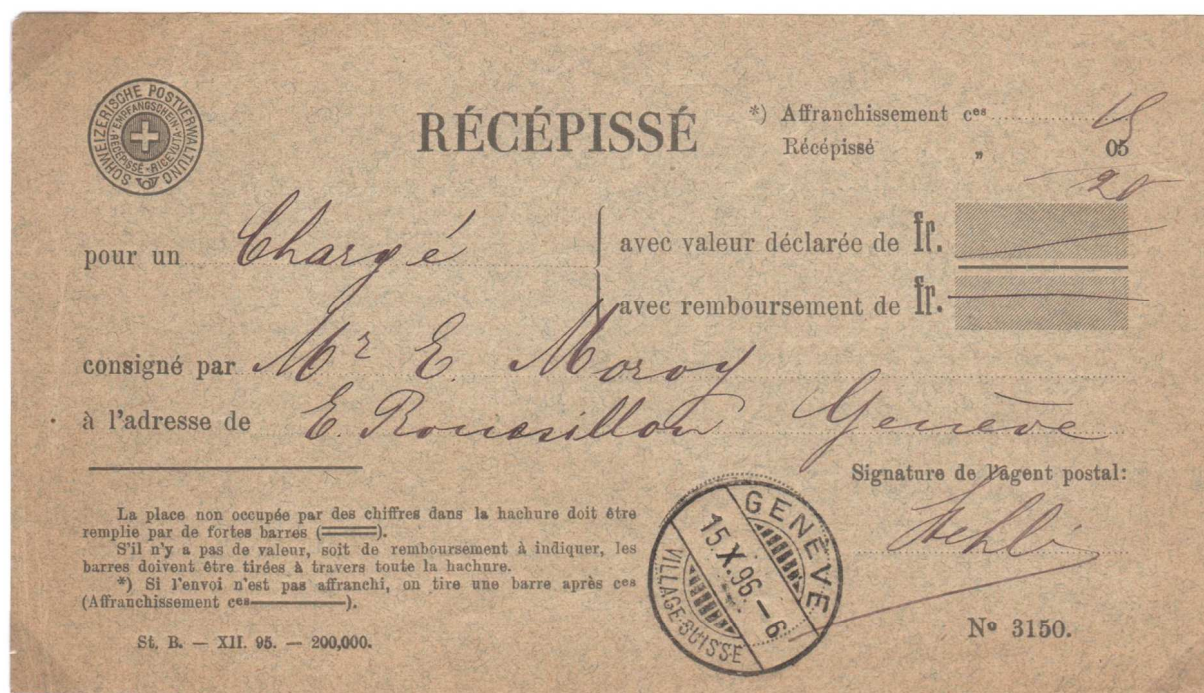 SCHWEIZERISCHE POSTVERWALTUNG
EMPFANGSCHEIN · RÉCÉPISSÉ · RICEVUTA
RÉCÉPISSÉ
*) Affranchissement ces 15
Récépissé „ 05
20
pour un Chargé
avec valeur déclarée de fr.
avec remboursement de fr.
consigné par Mr E. Moroy
à l'adresse de E. Roussillon Genève
Signature de l'agent postal:
La place non occupée par des chiffres dans la hachure doit être
remplie par de fortes barres (═══).
S'il n'y a pas de valeur, soit de remboursement à indiquer, les
barres doivent être tirées à travers toute la hachure.
*) Si l'envoi n'est pas affranchi, on tire une barre après ces
(Affranchissement ces ———).
GENÈVE
15.X.96.–6
VILLAGE-SUISSE
St. B. — XII. 95. — 200,000.
No 3150.